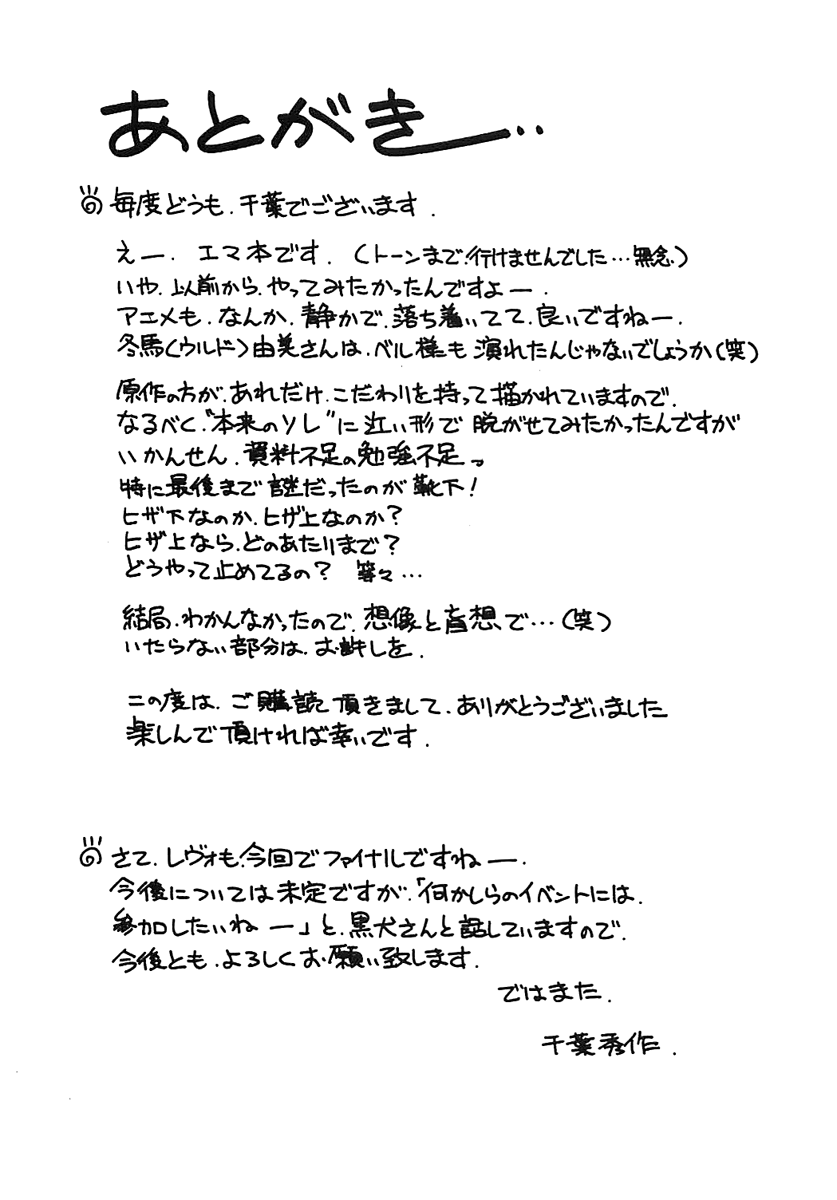 あとがき━‥
毎度どうも.千葉でございます.
えー.エマ本です.(トーンまで.行けませんでした…無念)
いや.以前から.やってみたかったんですよー.
アニメも.なんか.静かで.落ち着いてて.良いですねー.
冬馬(ウルド)由美さんは.ベル様も演れたんじゃないでしょうか(笑)
原作の方が.あれだけ.こだわりを持って描かれていますので.
なるべく“本来のソレ”に近い形で脱がせてみたかったんですが
いかんせん.資料不足の勉強不足っ
特に最後まで謎だったのが靴下!
ヒザ下なのか.ヒザ上なのか?
ヒザ上なら.どのあたりまで?
どうやって止めてるの? 等々…
結局.わかんなかったので.想像と盲想で…(笑)
いたらない部分は.お許しを.
この度は.ご購読頂きまして.ありがとうございました
楽しんで頂ければ幸いです.
さて.レヴォも.今回でファイナルですねー.
今後については未定ですが.「何かしらのイベントには.
参加したいねー」と.黒犬さんと話していますので.
今後とも.よろしくお願い致します.
ではまた.
千葉秀作.